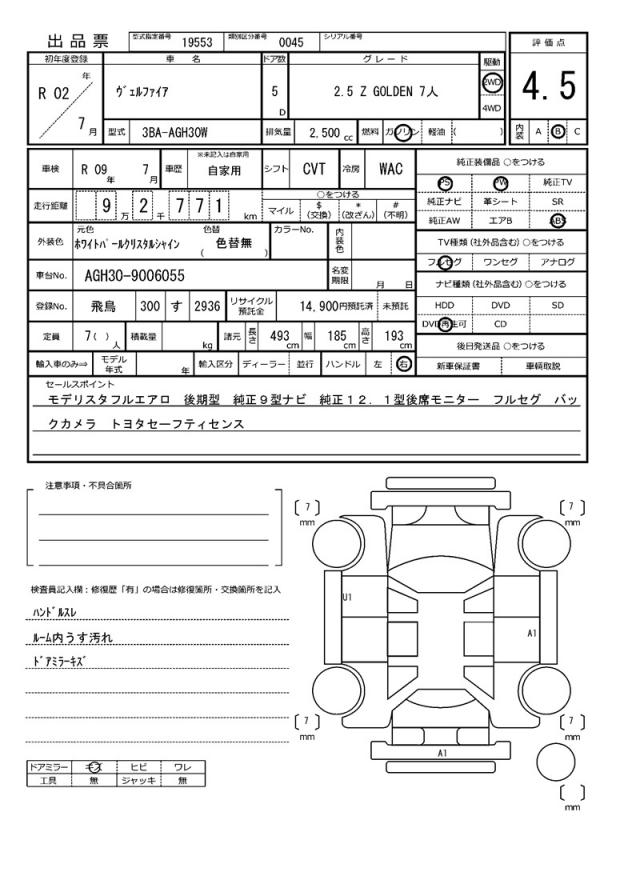 出品票 型式指定番号 19553 類別区分番号 0045 シリアル番号
評価点
4.5
内装 A B C
初年度登録 車名 ドア数 グレード 駆動
R 02 年 7 月
ヴェルファイア 5 D 2.5 Z GOLDEN 7人 2WD
4WD
型式 3BA-AGH30W 排気量 2,500 cc 燃料 ガソリン 軽油 ( )
車検 R 09 年 7 月 車歴 ※未記入は自家用 自家用 シフト CVT 冷房 WAC
走行距離 9 万 2 千 7 7 1 km ○をつける
マイル $ (交換) * (改ざん) # (不明)
外装色 元色 ホワイトパールクリスタルシャイン 色替 色替無 ( ) カラーNo. 内装色
車台No. AGH30-9006055 名変期限 月 日
登録No. 飛鳥 300 す 2936 リサイクル預託金 14,900円預託済 未預託
定員 7( ) 人 積載量 kg 諸元 長さ 493 cm 幅 185 cm 高さ 193 cm
輸入車のみ⇒ モデル年式 年 輸入区分 ディーラー 並行 ハンドル 左 右
純正装備品 ○をつける
PS PW 純正TV
純正ナビ 革シート SR
純正AW エアB ABS
TV種類(社外品含む) ○をつける
フルセグ ワンセグ アナログ
ナビ種類(社外品含む) ○をつける
HDD DVD SD
DVD再生可 CD
後日発送品 ○をつける
新車保証書 車輌取説
セールスポイント
モデリスタフルエアロ 後期型 純正9型ナビ 純正12.1型後席モニター フルセグ バッ
クカメラ トヨタセーフティセンス
注意事項・不具合箇所
検査員記入欄：修復歴「有」の場合は修復箇所・交換箇所を記入
ハンドルスレ
ルーム内うす汚れ
ドアミラーキズ
ドアミラー キズ ヒビ ワレ
工具 無 ジャッキ 無
7
mm
7
mm
U1
A1
7
mm
7
mm
A1
mm